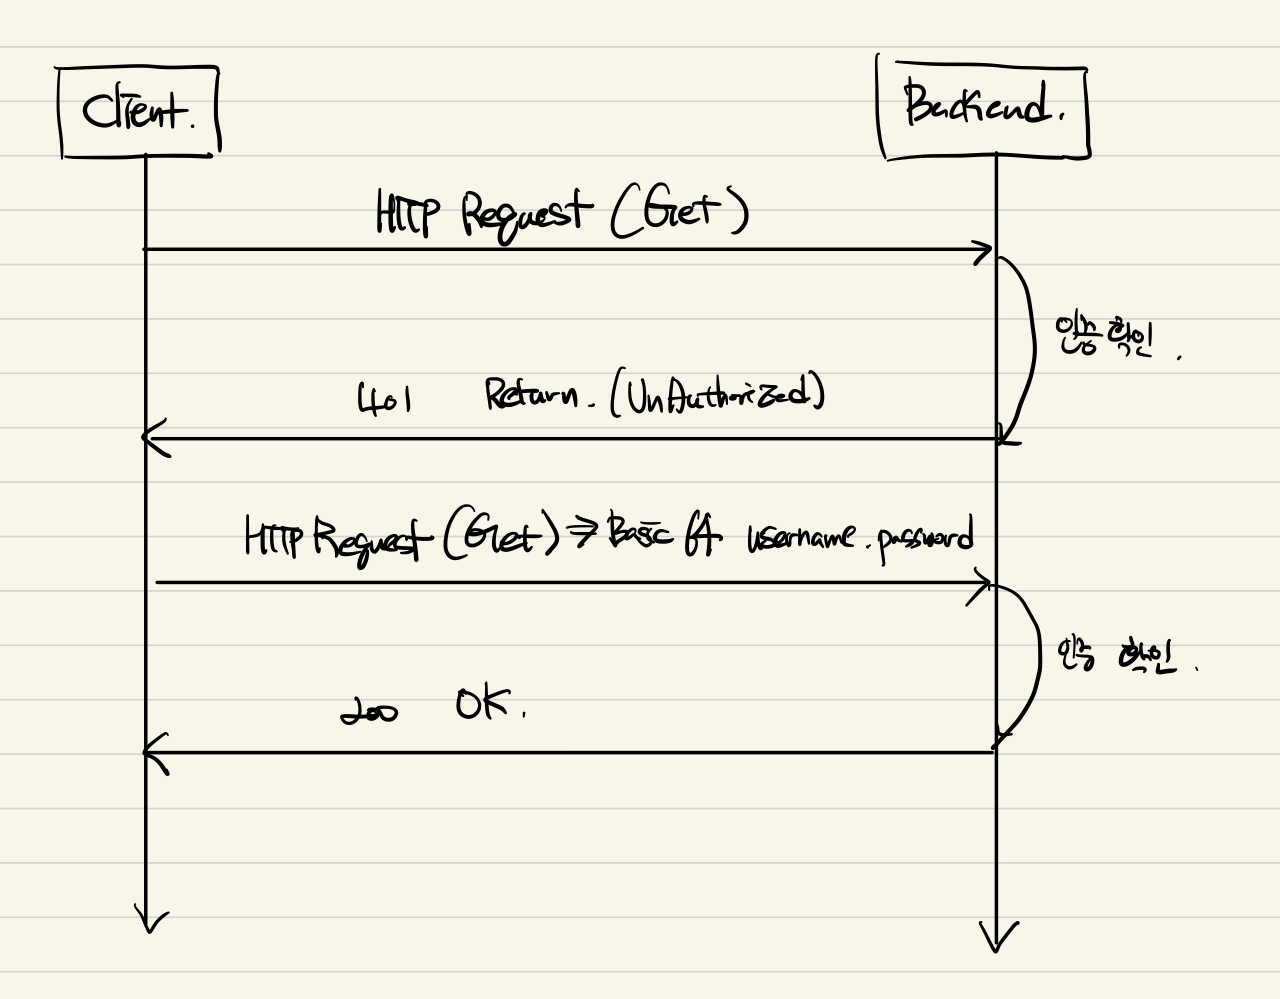 Client.
Backend.
HTTP Request (Get)
인증 확인.
401 Return. (UnAuthorized)
HTTP Request (Get) ⇒ Basic username. password
인증 확인.
200 OK.